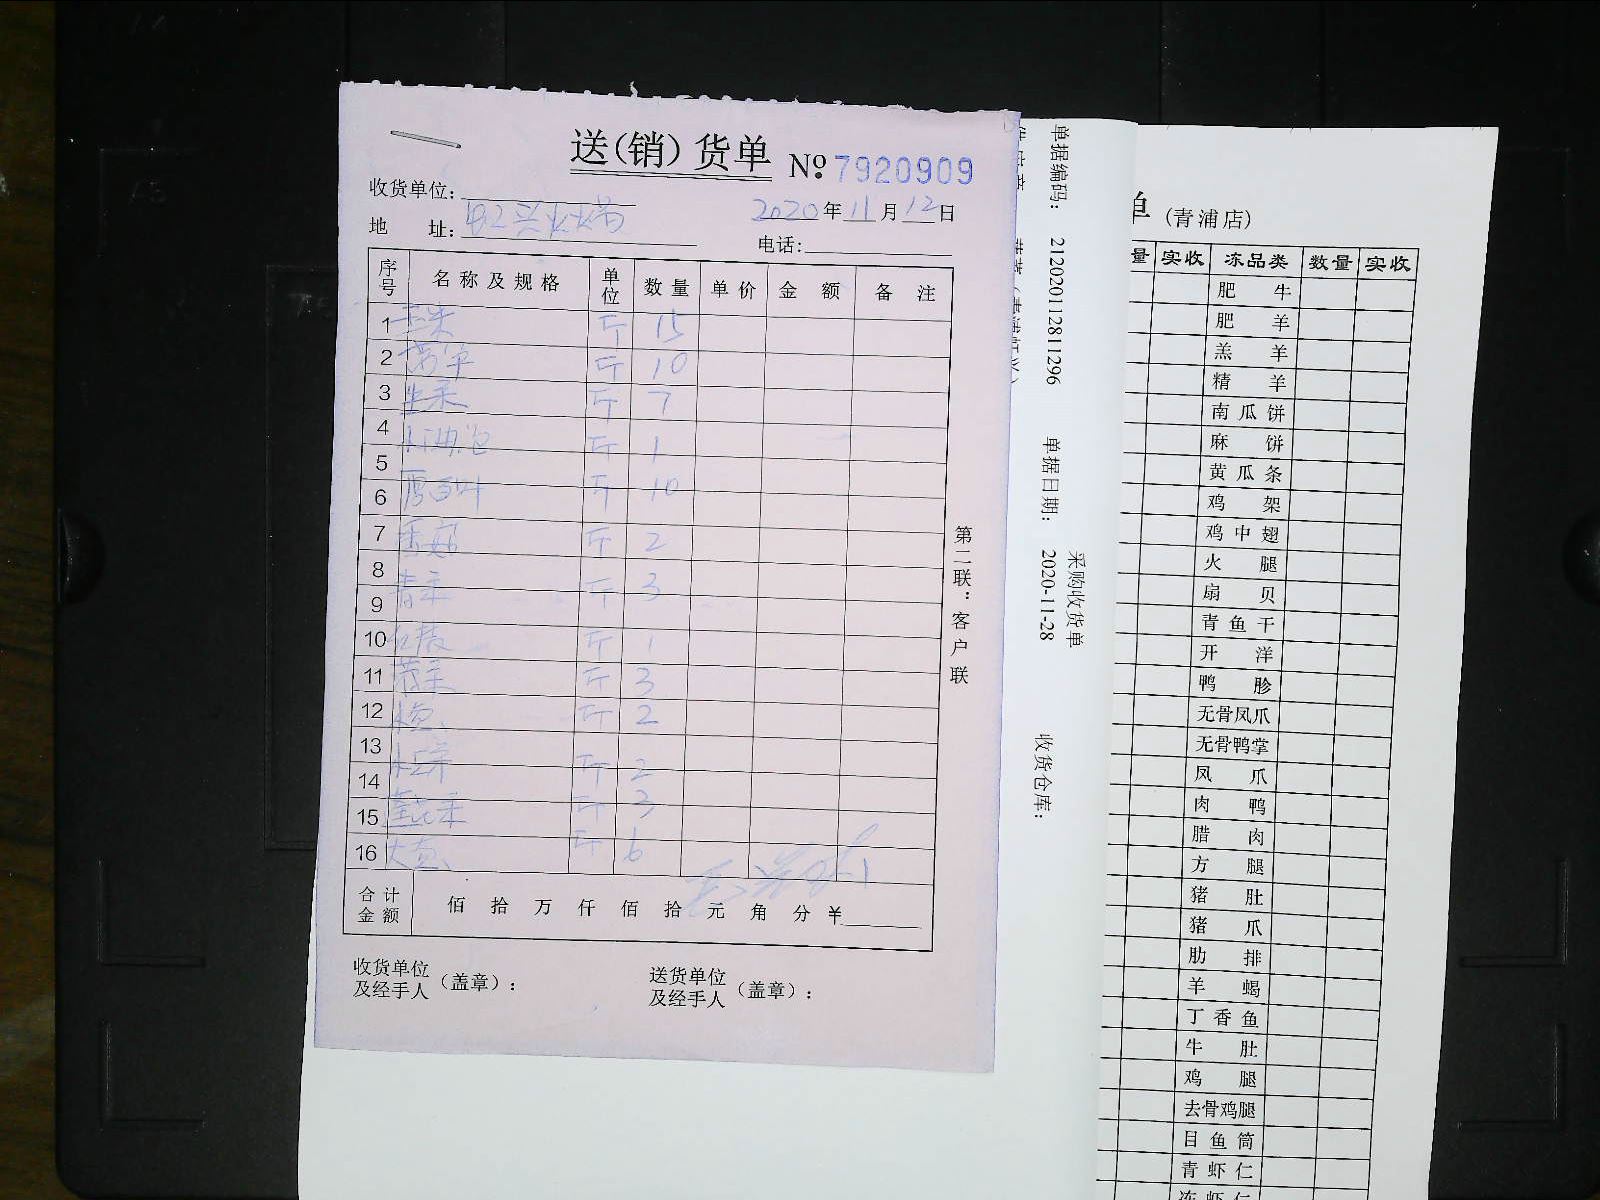 送(销)货单 № 7920909
收货单位:
2020年11月12日
地 址:
电话:
序号 名称及规格 单位 数量 单价 金额 备注
1 土头 斤 15
2 莴笋 斤 10
3 生菜 斤 7
4 小油泡 斤 1
5
6 厚百叶 斤 10
7 香菇 斤 2
8 青菜 斤 3
9
10 斤 1
11 斤 3
12 斤 2
13 斤 2
14 斤 3
15
16 斤 6
合计金额 佰 拾 万 仟 佰 拾 元 角 分 ¥
收货单位及经手人(盖章):
送货单位及经手人(盖章):
第二联:客户联
采购收货单
单据编码: 2120201128811296
单据日期: 2020-11-28
收货仓库:
单(青浦店)
量 实收 冻品类 数量 实收
肥牛
肥羊
羔羊
精羊
南瓜饼
麻饼
黄瓜条
鸡架
鸡中翅
火腿
扇贝
青鱼干
开洋
鸭胗
无骨凤爪
无骨鸭掌
凤爪
肉鸭
腊肉
方腿
猪肚
猪爪
肋排
羊蝎
丁香鱼
牛肚
鸡腿
去骨鸡腿
目鱼筒
青虾仁
冻虾仁